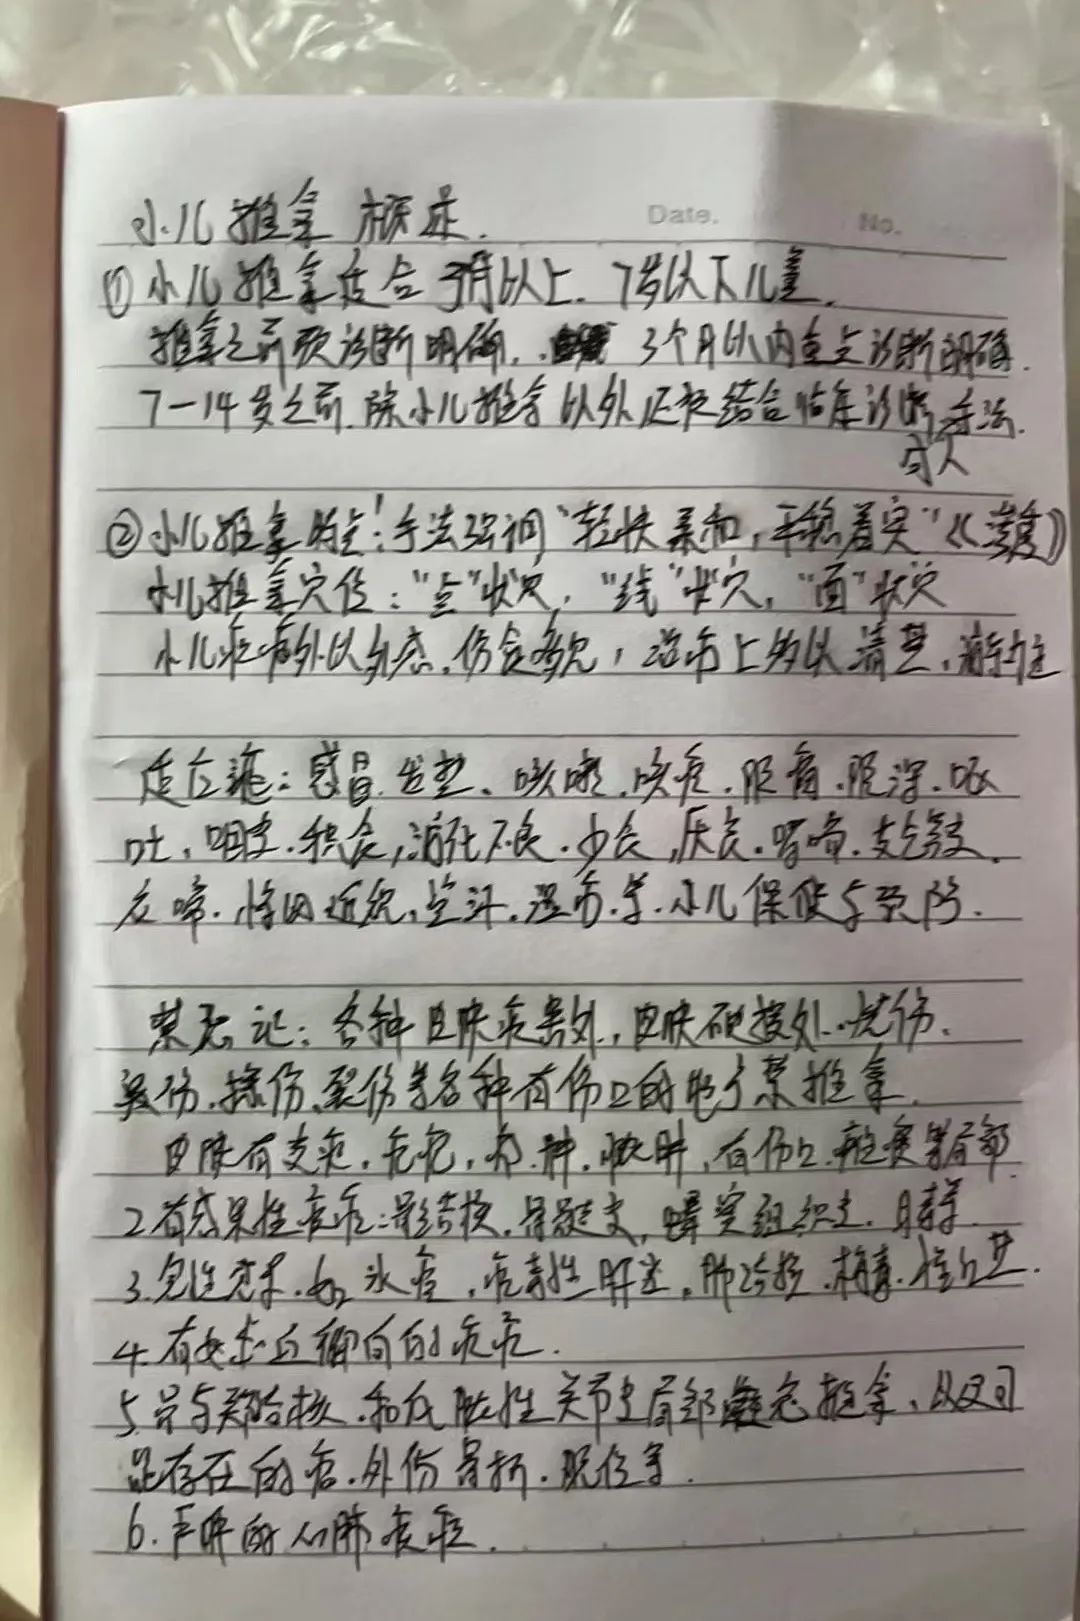 小儿推拿 概述.
Date. No.
① 小儿推拿适合 3月以上. 7岁以下儿童.
推拿之前须诊断明确. 3个月以内重点诊断明确.
7—14岁之前. 除小儿推拿以外还须结合临床诊断手法.
成人
② 小儿推拿特点: 手法强调"轻快柔和, 平稳着实"
小儿推拿穴位: "点"状穴, "线"状穴, "面"状穴
小儿疾病外以外感. 伤食多见, 治疗上多以清热,
适应症: 感冒. 发热、咳嗽. 咳痰. 腹痛. 腹泻. 呕
吐, 积食, 消化不良. 少食, 厌食. 哮喘. 支气管炎.
夜啼. 近视, 盗汗, 等. 小儿保健与预防.
禁忌记: 各种皮肤病患处, 皮肤硬损处. 烧伤.
烫伤. 擦伤. 裂伤等各种有伤口的地方禁推拿.
皮肤有 有伤口. 等局部
2.有感染性疾症: 骨结核. 骨髓炎, 蜂窝组织炎.
3.急性 如水痘, 病毒性肝炎, 肺结核. 梅毒.
4.有出血倾向的疾症.
5.骨与 结核. 和化脓性关节炎局部 推拿、以及可
能存在的 外伤骨折. 脱位等.
6.严重的心肺疾症.